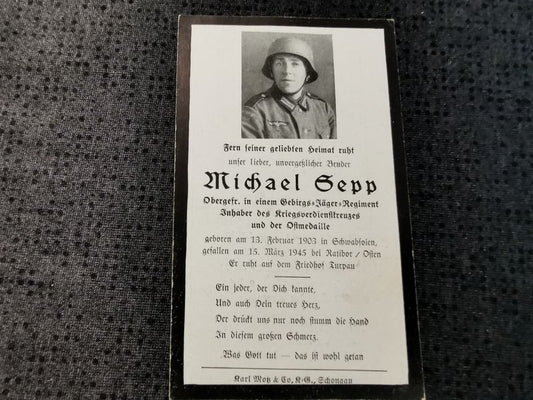 Fern seiner geliebten Heimat ruht
unser lieber, unvergeßlicher Bruder
Michael Sepp
Obergefr. in einem Gebirgs-Jäger-Regiment
Inhaber des Kriegsverdienstkreuzes
und der Ostmedaille
geboren am 13. Februar 1903 in Schwabsoien,
gefallen am 15. März 1945 bei Ratibor / Osten
Er ruht auf dem Friedhof Turpau
Ein jeder, der Dich kannte,
Und auch Dein treues Herz,
Der drückt uns nur noch stumm die Hand
In diesem großen Schmerz.
Was Gott tut — das ist wohl getan
Karl Motz & Co, K.-G., Schongau